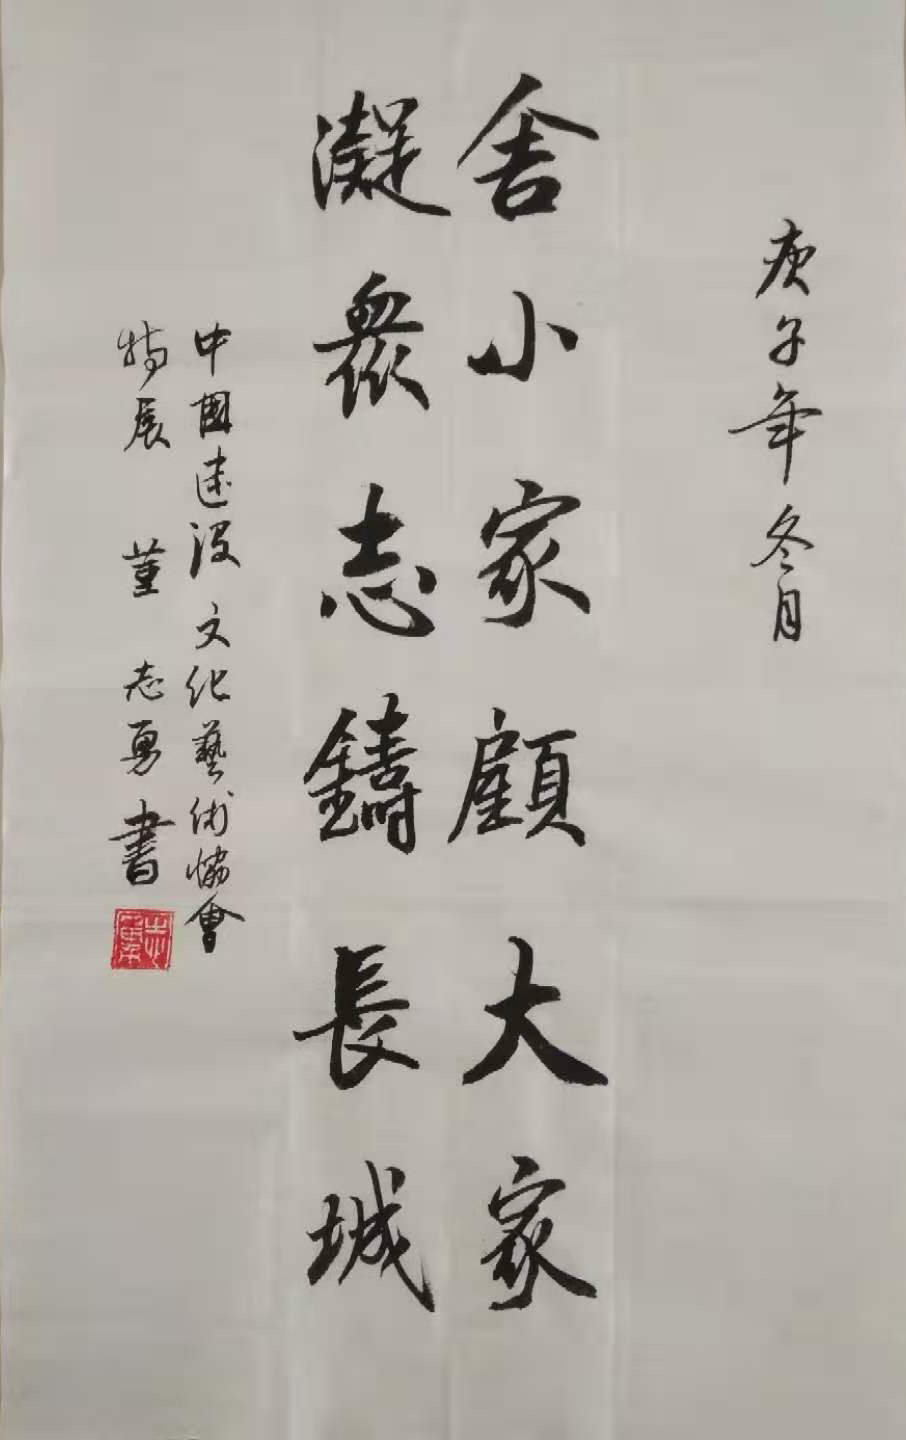 庚子年冬月
舍小家顧大家
凝衆志鑄長城
中國建设文化藝術協會
特展 董志勇書